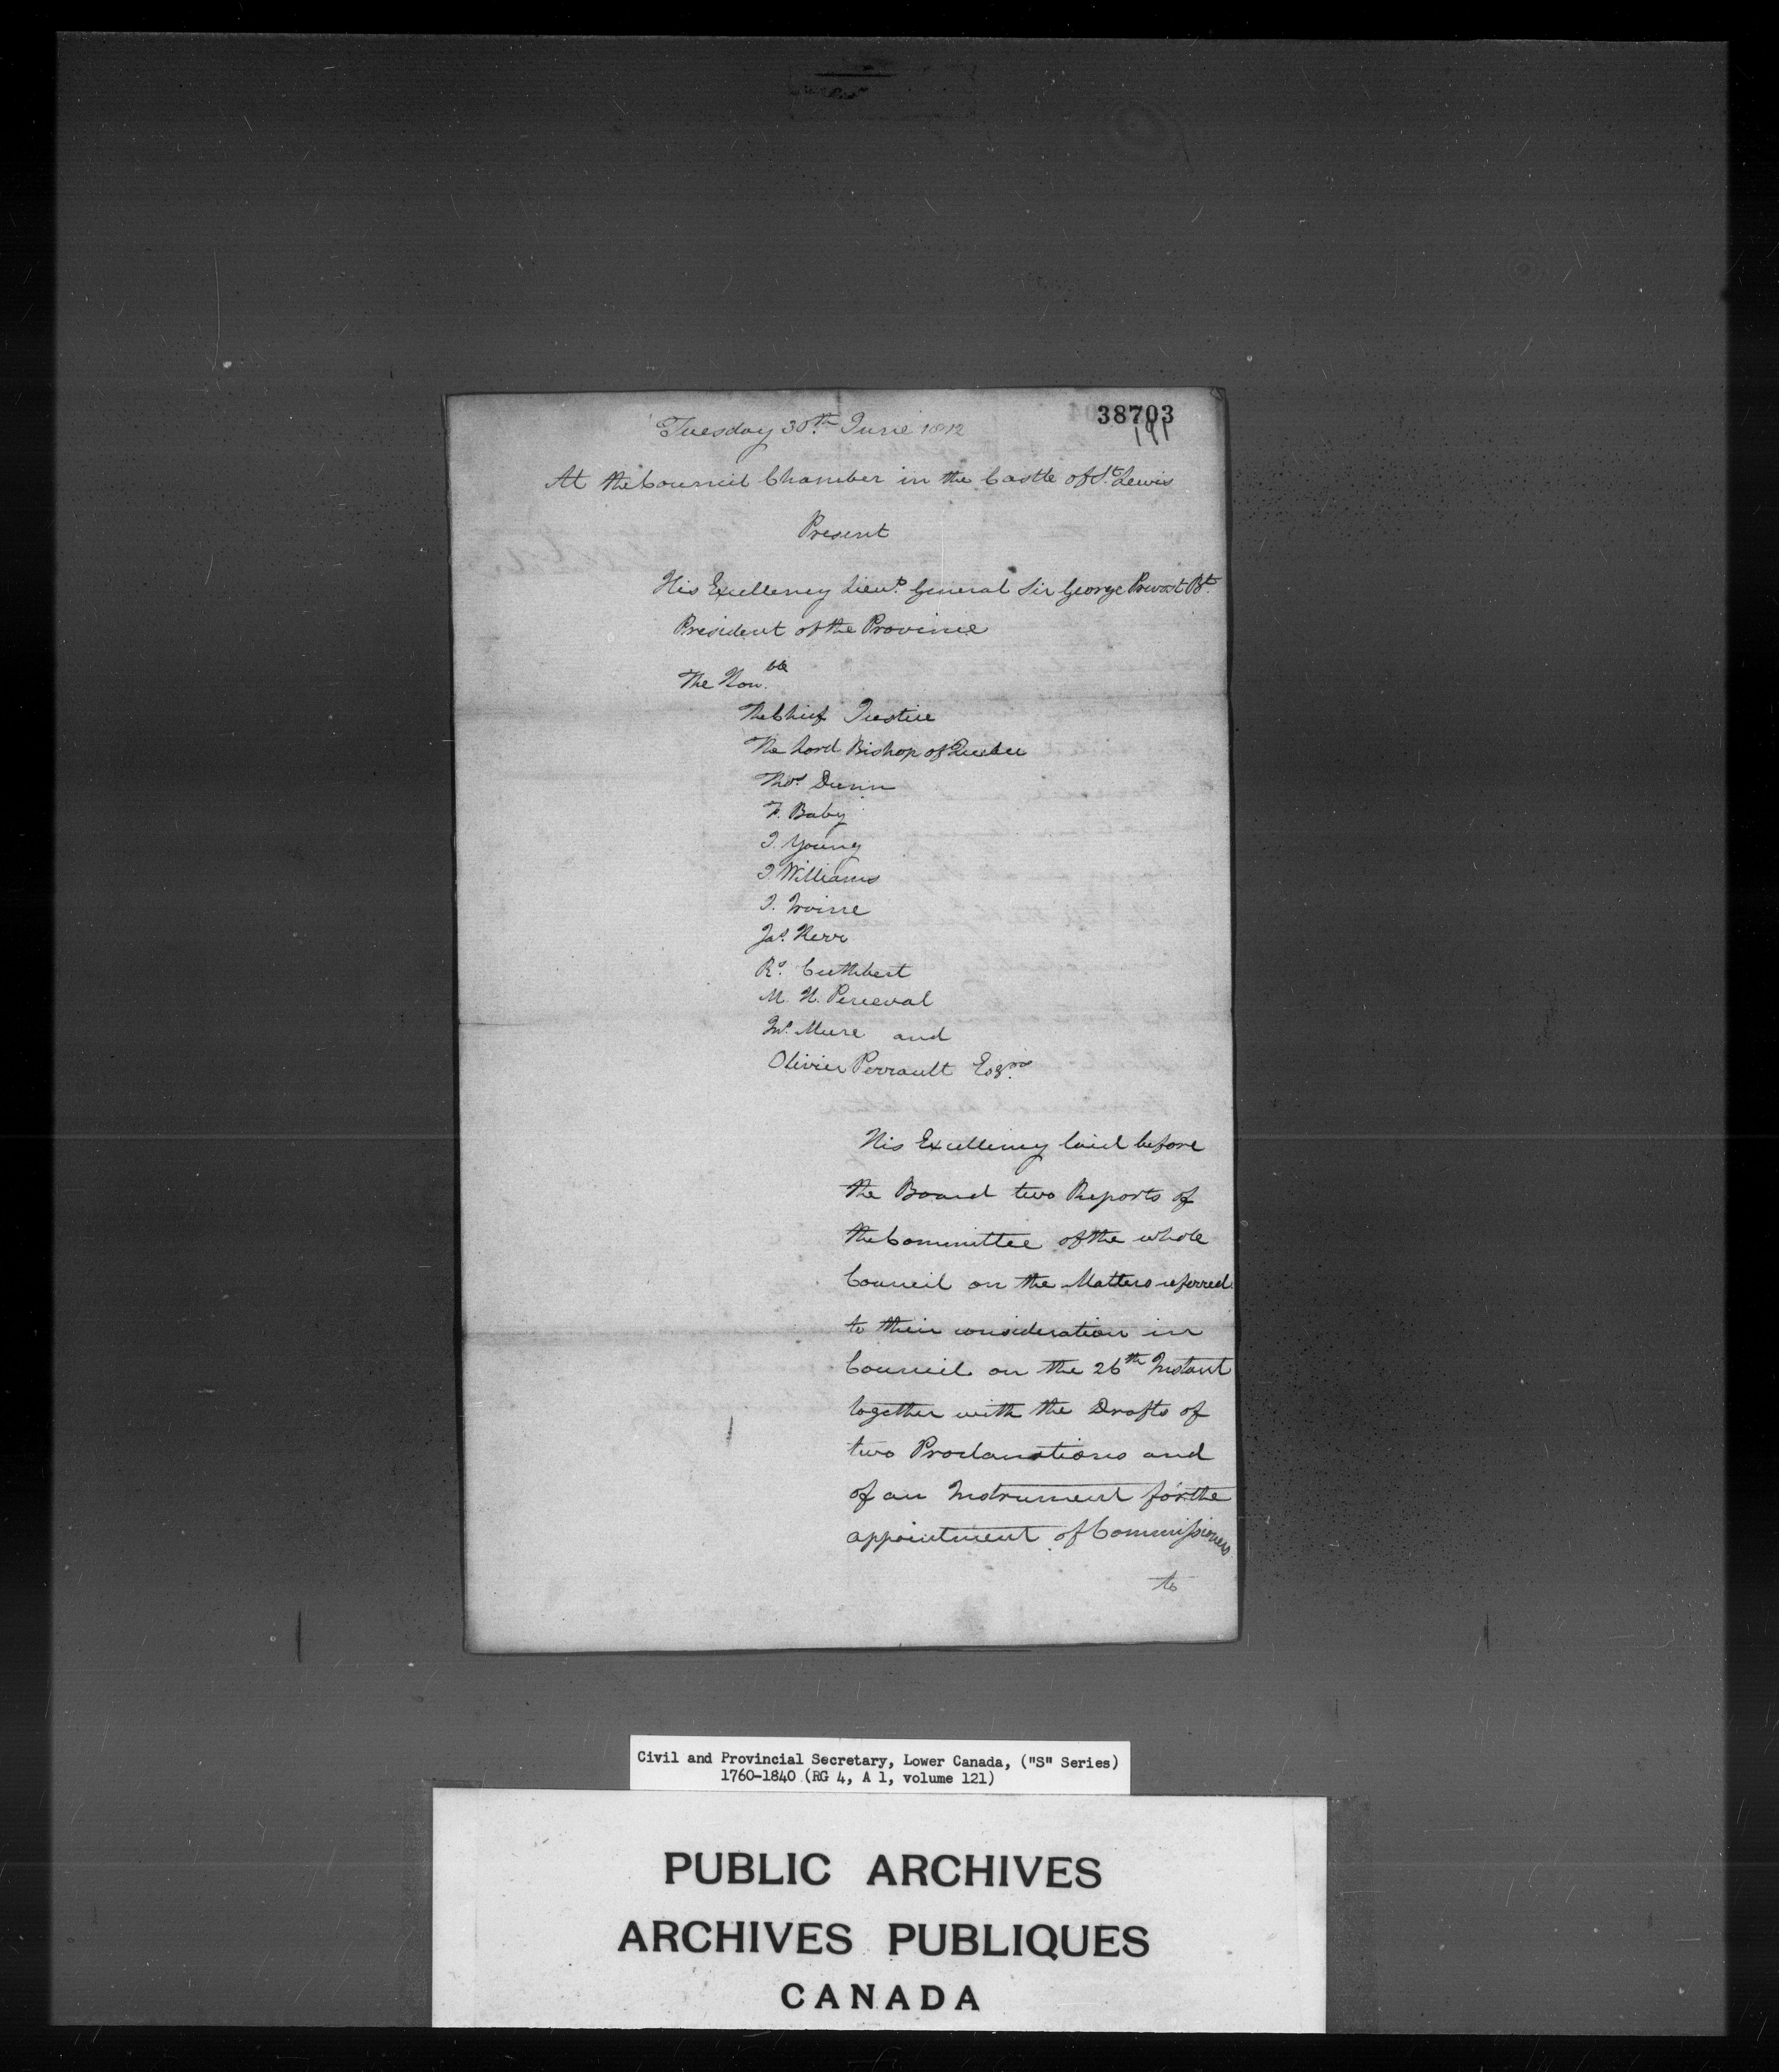 38703
191
Tuesday 30th June 1812
At the Council Chamber in the Castle of St. Lewis
Present
His Excellency Lieut. General Sir George Prevost Bt.
President of the Province
The Honble.
The Chief Justice
The Lord Bishop of Quebec
Thos. Dunn
F. Baby
J. Young
J. Williams
J. Irvine
Jas. Kerr
Rs. Cuthbert
M. H. Perceval
Jno. Mure and
Olivier Perrault Esqrs.
His Excellency laid before
the Board two Reports of
the Committee of the whole
Council on the Matters referred
to their consideration in
Council on the 26th Instant
together with the Drafts of
two Proclamations and
of an Instrument for the
appointment of Commissioners
to
Civil and Provincial Secretary, Lower Canada, ("S" Series)
1760-1840 (RG 4, A 1, volume 121)
PUBLIC ARCHIVES
ARCHIVES PUBLIQUES
CANADA